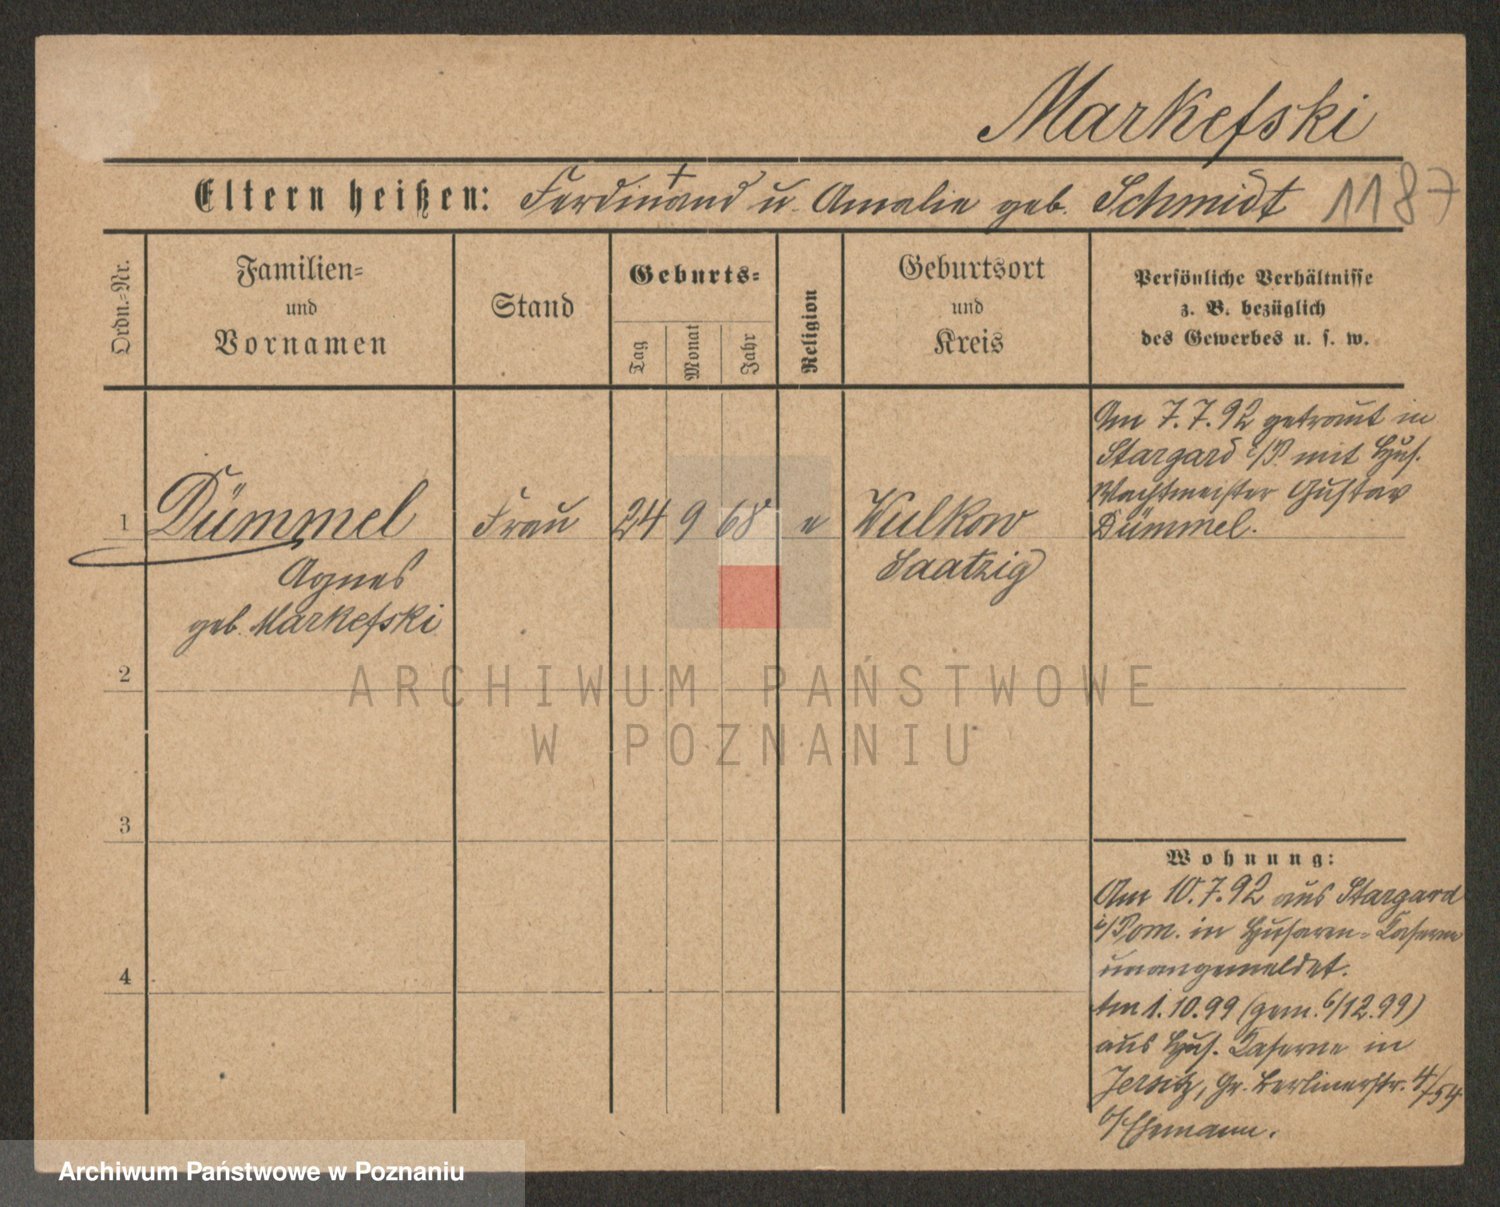 Markefski
Eltern heißen: Ferdinand † u. Amalie geb. Schmidt 1187
Ordn.-Nr.
Familien-
und
Vornamen
Stand
Geburts-
Tag
Monat
Jahr
Religion
Geburtsort
und
Kreis
Persönliche Verhältnisse
z. B. bezüglich
des Gewerbes u. s. w.
1
Dümmel
Agnes
geb. Markefski
Frau
24 9 68
e
Wulkow
Saatzig
Am 7.7.92 getraut in
Stargard i/P. mit Hus.
Wachtmeister Gustav
Dümmel.
2
3
4
Wohnung:
Am 10.7.92 aus Stargard
i/Pom. in Husaren-Kaserne
unangemeldet.
Am 1.10.99 (gem. 6/12.99)
aus Hus. Kaserne in
Jersitz, Gr. Berlinerstr. 4/54
b/Ehemann.
ARCHIWUM PAŃSTWOWE
W POZNANIU
Archiwum Państwowe w Poznaniu